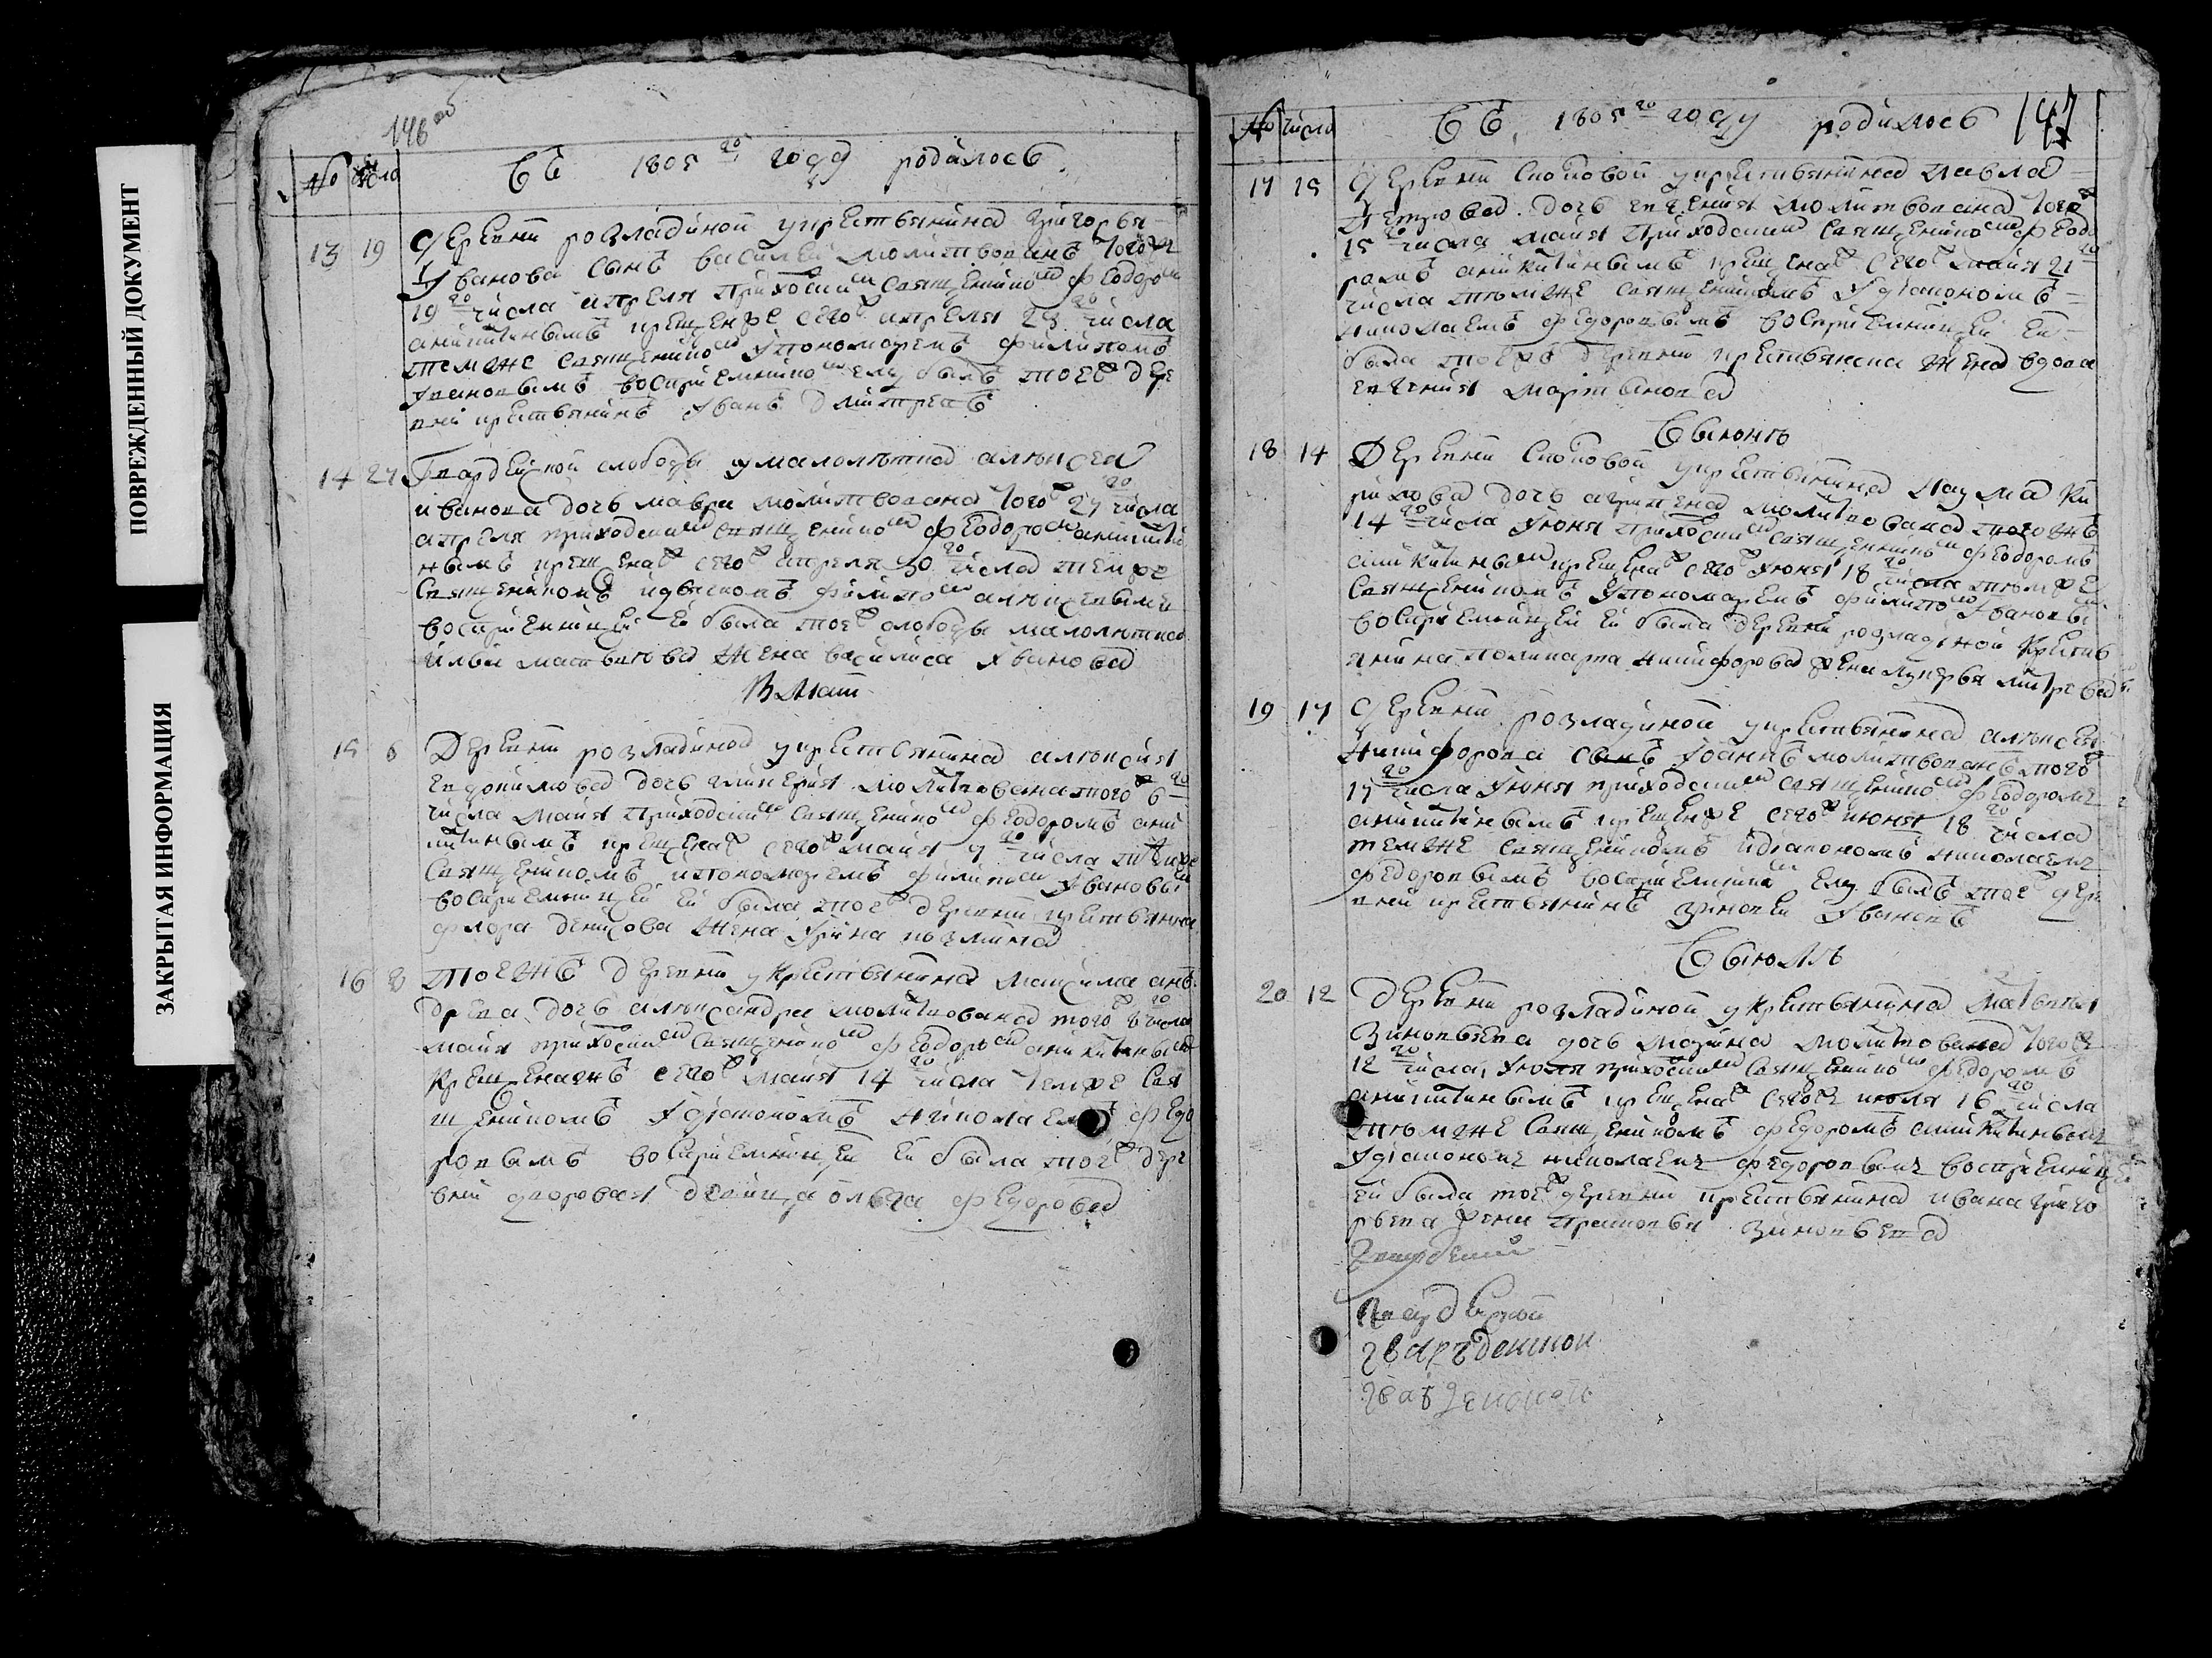 ПОВРЕЖДЕННЫЙ ДОКУМЕНТ
ЗАКРЫТАЯ ИНФОРМАЦИЯ
146 об
№ числа
Въ 1805 го году родилось
13 19 деревни розладиной у крестьянина григорья
Иванова сынъ василей молитвованъ тогожъ
19 го числа апреля приходскимъ священникомъ феодоромъ
аникитинымъ крещенже сегожъ апреля 23 го числа
темже священникомъ Iпономаремъ филипомъ
Iвановымъ восприемникомъ ему былъ тоежъ дере
вни крестьянинъ Iванъ дмитревъ
14 27 Гвардейской слободы умалолѣтнаго алѣксея
иванова дочь мавра молитвована тогожъ 27 го числа
апреля приходскимъ священникомъ феодоромъ аникити
нымъ крещенажъ сегожъ апреля 30 го числа темже
Священникомъ идьяскомъ филипомъ алѣксѣевымъ
восприемницей ей была тоежъ слободы малолѣтнаго
ильи матвѣева жена василиса Iванова
В Маи
15 6 Деревни розладиной у крестьянина алѣксѣя
евдокимова дочь гликерия молитвована тогожъ 6 го
числа майя приходскимъ священникомъ феодоромъ ани
китинымъ крещенажъ сегожъ майя 7 го числа темже
Священникомъ ипономаремъ филипомъ Iвановымъ
восприемницей ей была тоежъ деревни крестьянина
флора денисова жена Iрина козмина
16 8 Тоежъ деревни у крестьянина максима анъ
древа дочь алѣксандра молитвована тогожъ 8 го числа
майя приходскимъ священникомъ феодоромъ аникитинымъ
Крещенажъ сегожъ майя 14 го числа темже свя
щенникомъ Iдiакономъ николаемъ федо
ровымъ восприемницей ей была тоежъ дере
вни дворовая девица ольга федорова
№ числа
Въ 1805 го году родилось 147
17 15 деревни Споповой у крестьянина павла
Петрова дочь евгения молитвована тогожъ
15 го числа майя приходскимъ священникомъ феодо
ромъ аникитинымъ крещенажъ сегожъ майя 21 го
числа тѣмже священникомъ Iдiакономъ
николаемъ федоровымъ восприемницей ей
была тоежъ деревни крестьянская жена вдова
евгения мартынова
Въ июнѣ
18 14 Деревни Споповой у крестьянина наума ки
рилова дочь агрипена молитвована тогожъ
14 го числа Iюня приходскимъ священникомъ феодоромъ
аникитинымъ крещенажъ сегожъ Iюня 18 го числа тѣмже
Священникомъ Iпономаремъ филипомъ Iвановымъ
восприемницей ей была деревни розладиной крестья
янина поликарпа никифорова жена лукерья
19 17 деревни розладиной у крестьянина алѣксея
Никифорова сынъ Iоаннъ молитвованъ тогожъ
17 го числа Iюня приходскимъ священникомъ феодоромъ
аникитинымъ крещенже сегожъ июня 18 го числа
темже священникомъ iдiакономъ николаемъ
федоровымъ восприемникомъ ему былъ тоежъ дере
вни крестьянинъ зиновей Iвановъ
Въ июлѣ
20 12 деревни розладиной у крестьянина матвѣя
Зиновьева дочь марина молитвована тогожъ
12 го числа Iюля приходскимъ священникомъ федоромъ
аникитинымъ крещенажъ сегожъ июля 16 го числа
тѣмже священникомъ федоромъ аникитинымъ
Iдiакономъ николаемъ федоровымъ восприемницей
ей была тоежъ деревни крестьянина ивана григо
рьева жена прасковья зиновьева
гвардеской
гваръдеиской